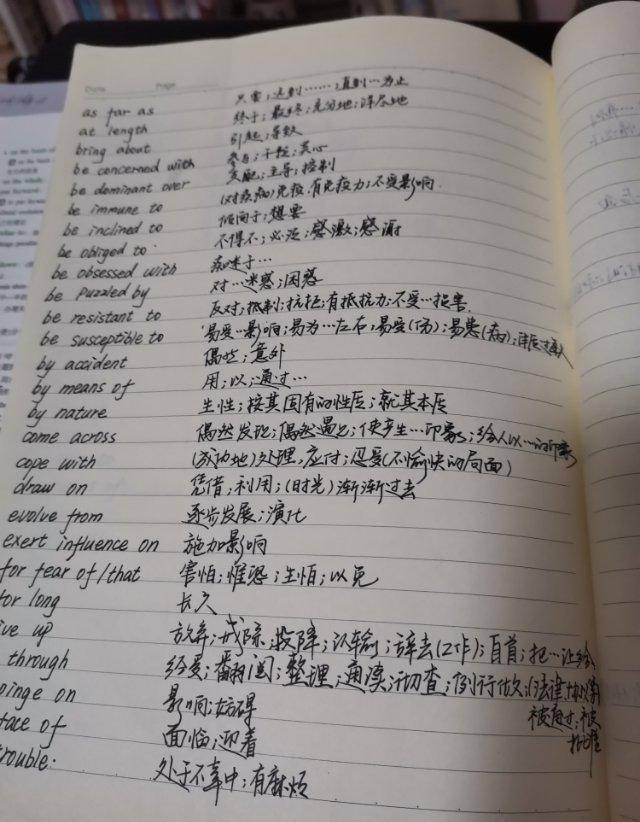 Date Page
as far as 只要；达到……；直到…为止
at length 终于；最终；充分地；详尽地
bring about 引起；导致
be concerned with 参与；干预；关心
be dominant over 支配；主导；控制
be immune to (对疾病)免疫，有免疫力；不受影响
be inclined to 倾向于；想要
be obliged to 不得不；必须；感激；感谢
be obsessed with 痴迷于…
be puzzled by 对…迷惑；困惑
be resistant to 反对；抵制；抗拒；有抵抗力；不受…损害
be susceptible to 易受…影响；易为…左右；易受(伤)；易患(病)；
by accident 偶然；意外
by means of 用；以；通过…
by nature 生性；按其固有的性质；就其本质
come across 偶然发现；偶然遇见；使产生…印象；给人以…的印象
cope with (成功地)处理，应付；忍受(不愉快的局面)
draw on 凭借；利用；(时光)渐渐过去
evolve from 逐步发展；演化
exert influence on 施加影响
for fear of/that 害怕；惟恐；生怕；以免
for long 长久
ive up 放弃；戒除；投降；认输；辞去(工作)；自首；把…让给
through 经受；翻阅；整理；通读；彻查；例行做；(法律
被通过；被
批准
pinge on 影响；妨碍
face of 面临；迎着
trouble. 处于不幸中；有麻烦